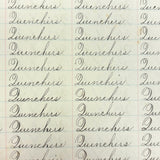 Quenchers Quenchers
Quenchers Quenchers
Quenchers Quenchers
Quenchers Quenchers
Quenchers Quenchers
Quenchers Quenchers
Quenchers Quenchers
Quenchers Quenchers
Quenchers Quenchers
Quenchers Quenchers
Quenchers Quenchers